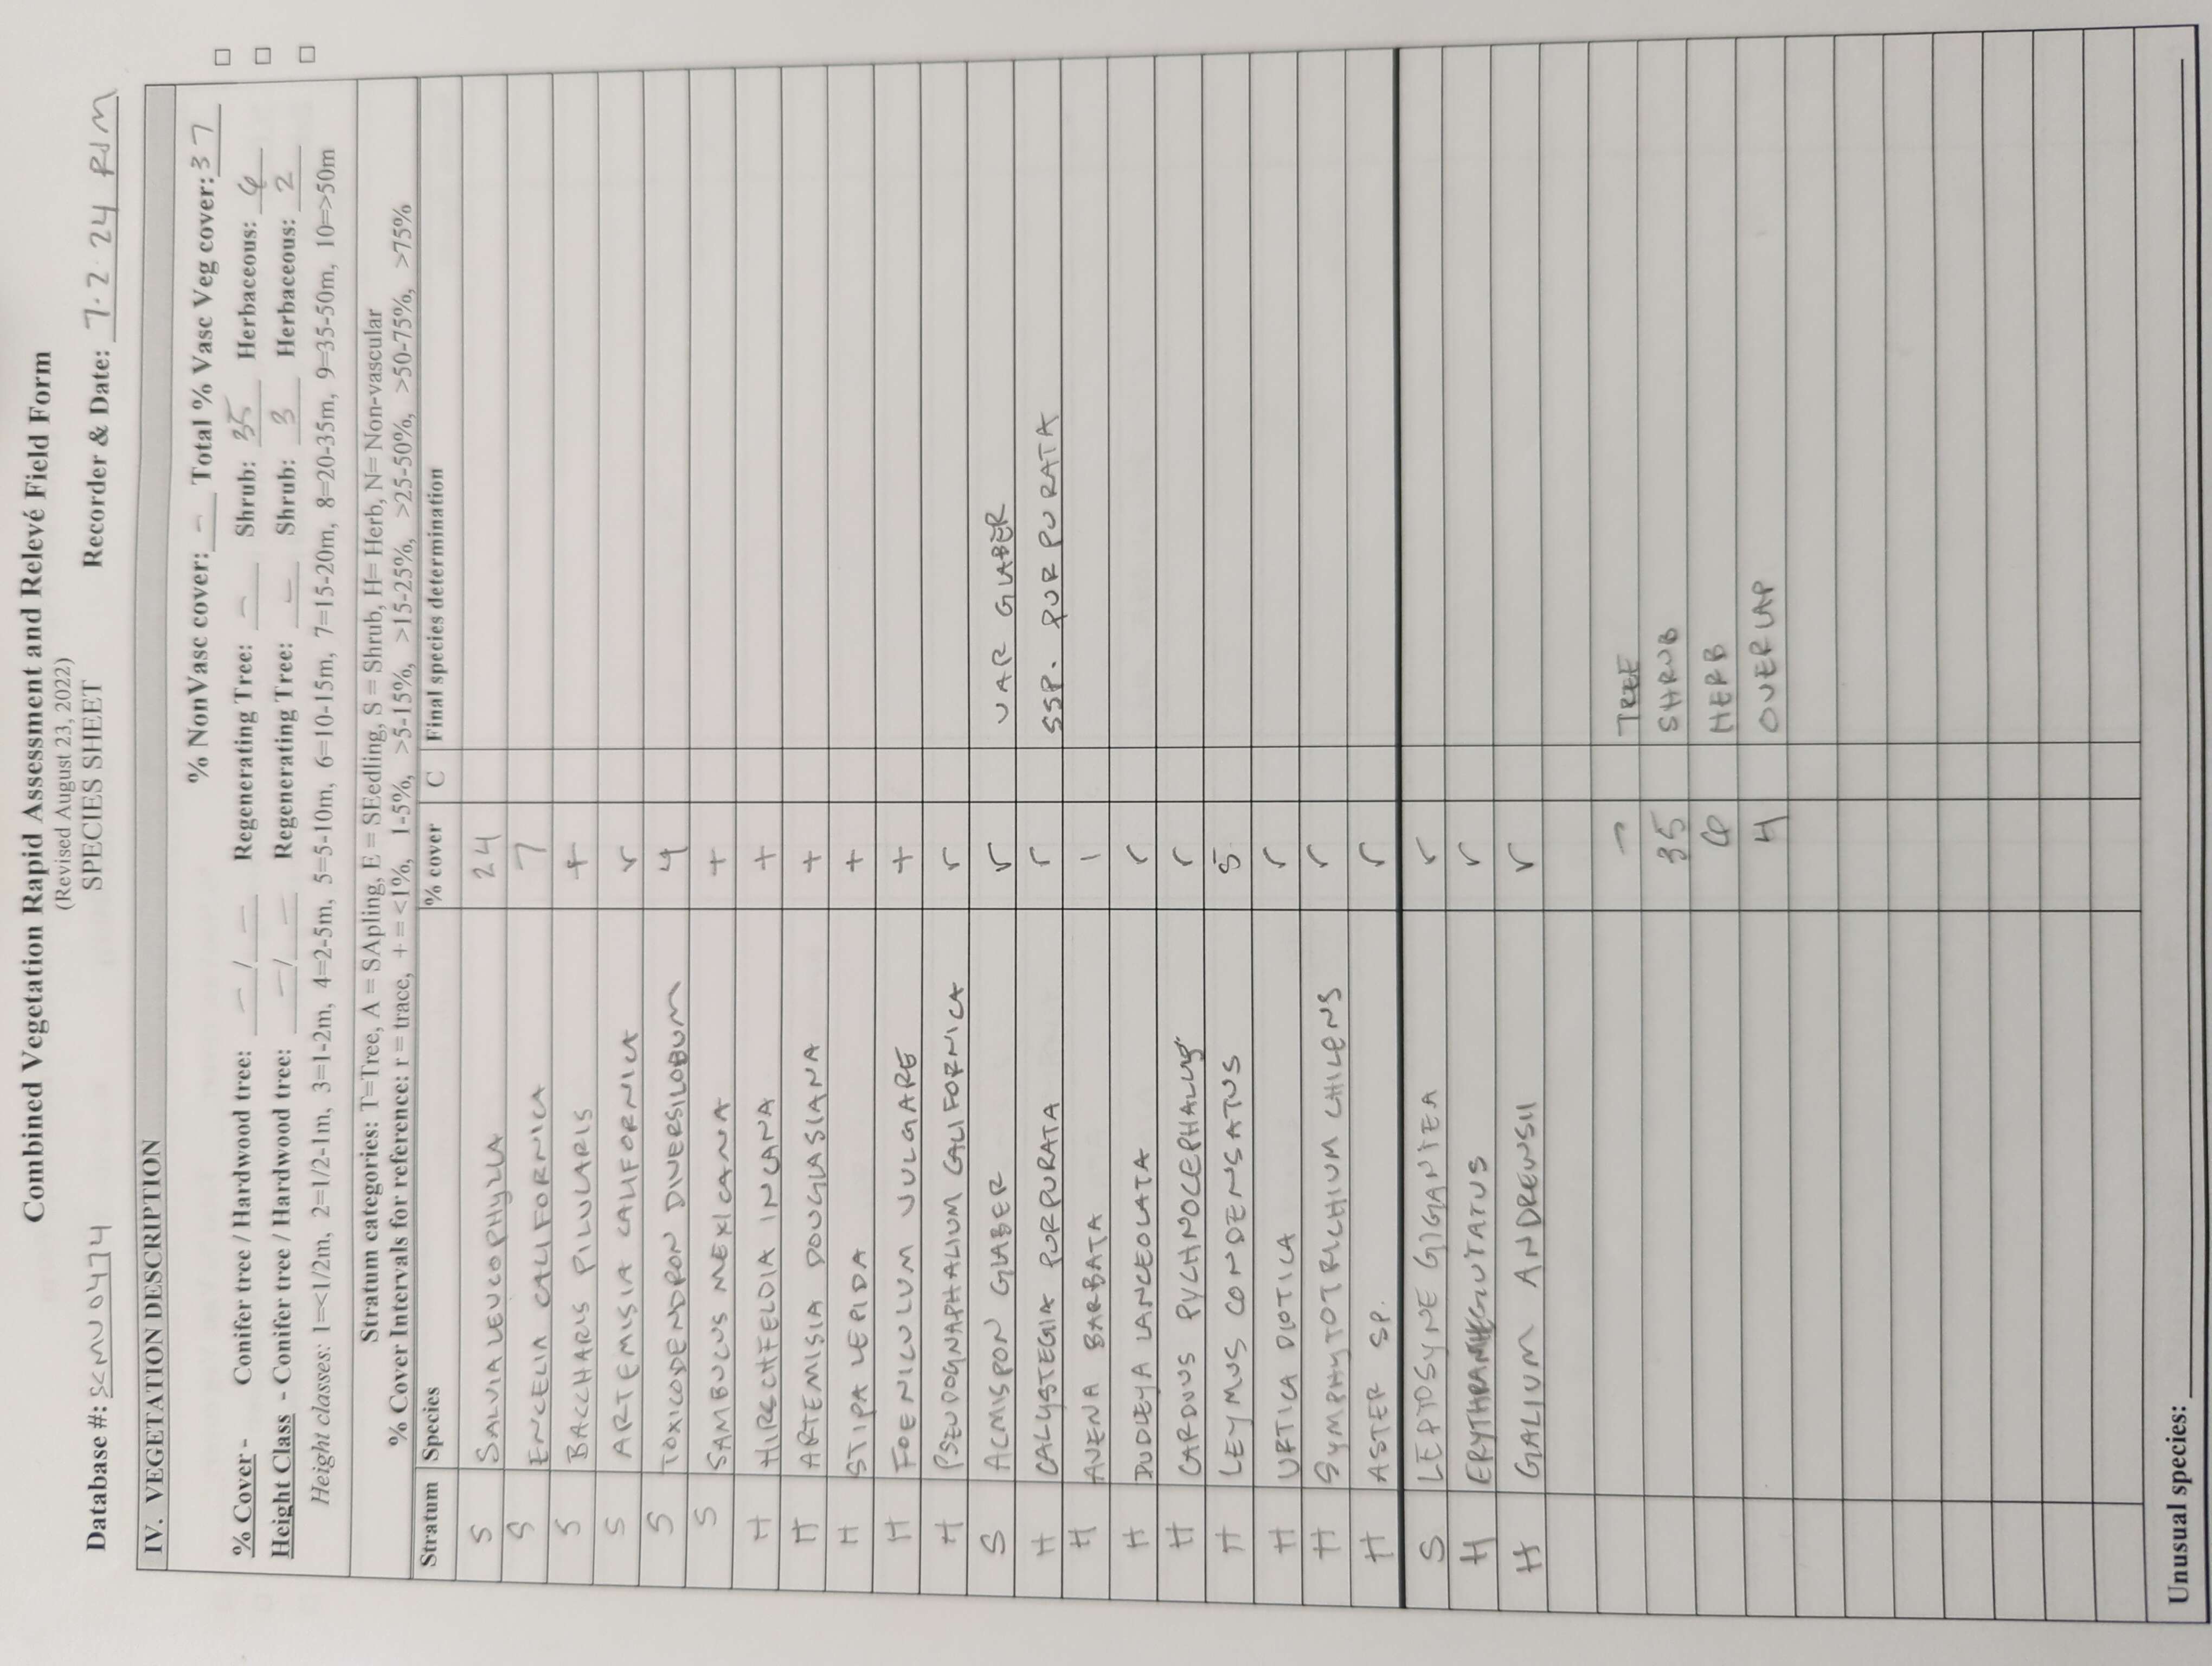 Combined Vegetation Rapid Assessment and Relevé Field Form
(Revised August 23, 2022)
SPECIES SHEET
Database #: SCMU0474 Recorder & Date: 7·2·24 RJM
IV. VEGETATION DESCRIPTION
% NonVasc cover: - Total % Vasc Veg cover: 37 □
% Cover - Conifer tree / Hardwood tree: - / - Regenerating Tree: - Shrub: 35 Herbaceous: 6 □
Height Class - Conifer tree / Hardwood tree: - / - Regenerating Tree: - Shrub: 3 Herbaceous: 2 □
Height classes: 1=<1/2m, 2=1/2-1m, 3=1-2m, 4=2-5m, 5=5-10m, 6=10-15m, 7=15-20m, 8=20-35m, 9=35-50m, 10=>50m
Stratum categories: T=Tree, A = SApling, E = SEedling, S = Shrub, H= Herb, N= Non-vascular
% Cover Intervals for reference: r = trace, + = <1%, 1-5%, >5-15%, >15-25%, >25-50%, >50-75%, >75%
Stratum Species % cover C Final species determination
S SALVIA LEUCOPHYLLA 24
S ENCELIA CALIFORNICA 7
S BACCHARIS PILULARIS +
S ARTEMISIA CALIFORNICA r
S TOXICODENDRON DIVERSILOBUM 4
S SAMBUCUS MEXICANA +
H HIRSCHFELDIA INCANA +
H ARTEMISIA DOUGLASIANA +
H STIPA LEPIDA +
H FOENICULUM VULGARE +
H PSEUDOGNAPHALIUM CALIFORNICA r
S ACMISPON GLABER r VAR GLABER
H CALYSTEGIA PURPURATA r SSP. PURPURATA
H AVENA BARBATA 1
H DUDLEYA LANCEOLATA r
H CARDUUS PYCHNOCEPHALUS r
H LEYMUS CONDENSATUS 5
H URTICA DIOTICA r
H SYMPHYTOTRICHIUM CHILENS r
H ASTER SP. r
S LEPTOSYNE GIGANTEA r
H GUTTATUS r
H GALIUM ANDREWSII r
- TREE
35 SHRUB
6 HERB
4 OVERLAP
Unusual species: